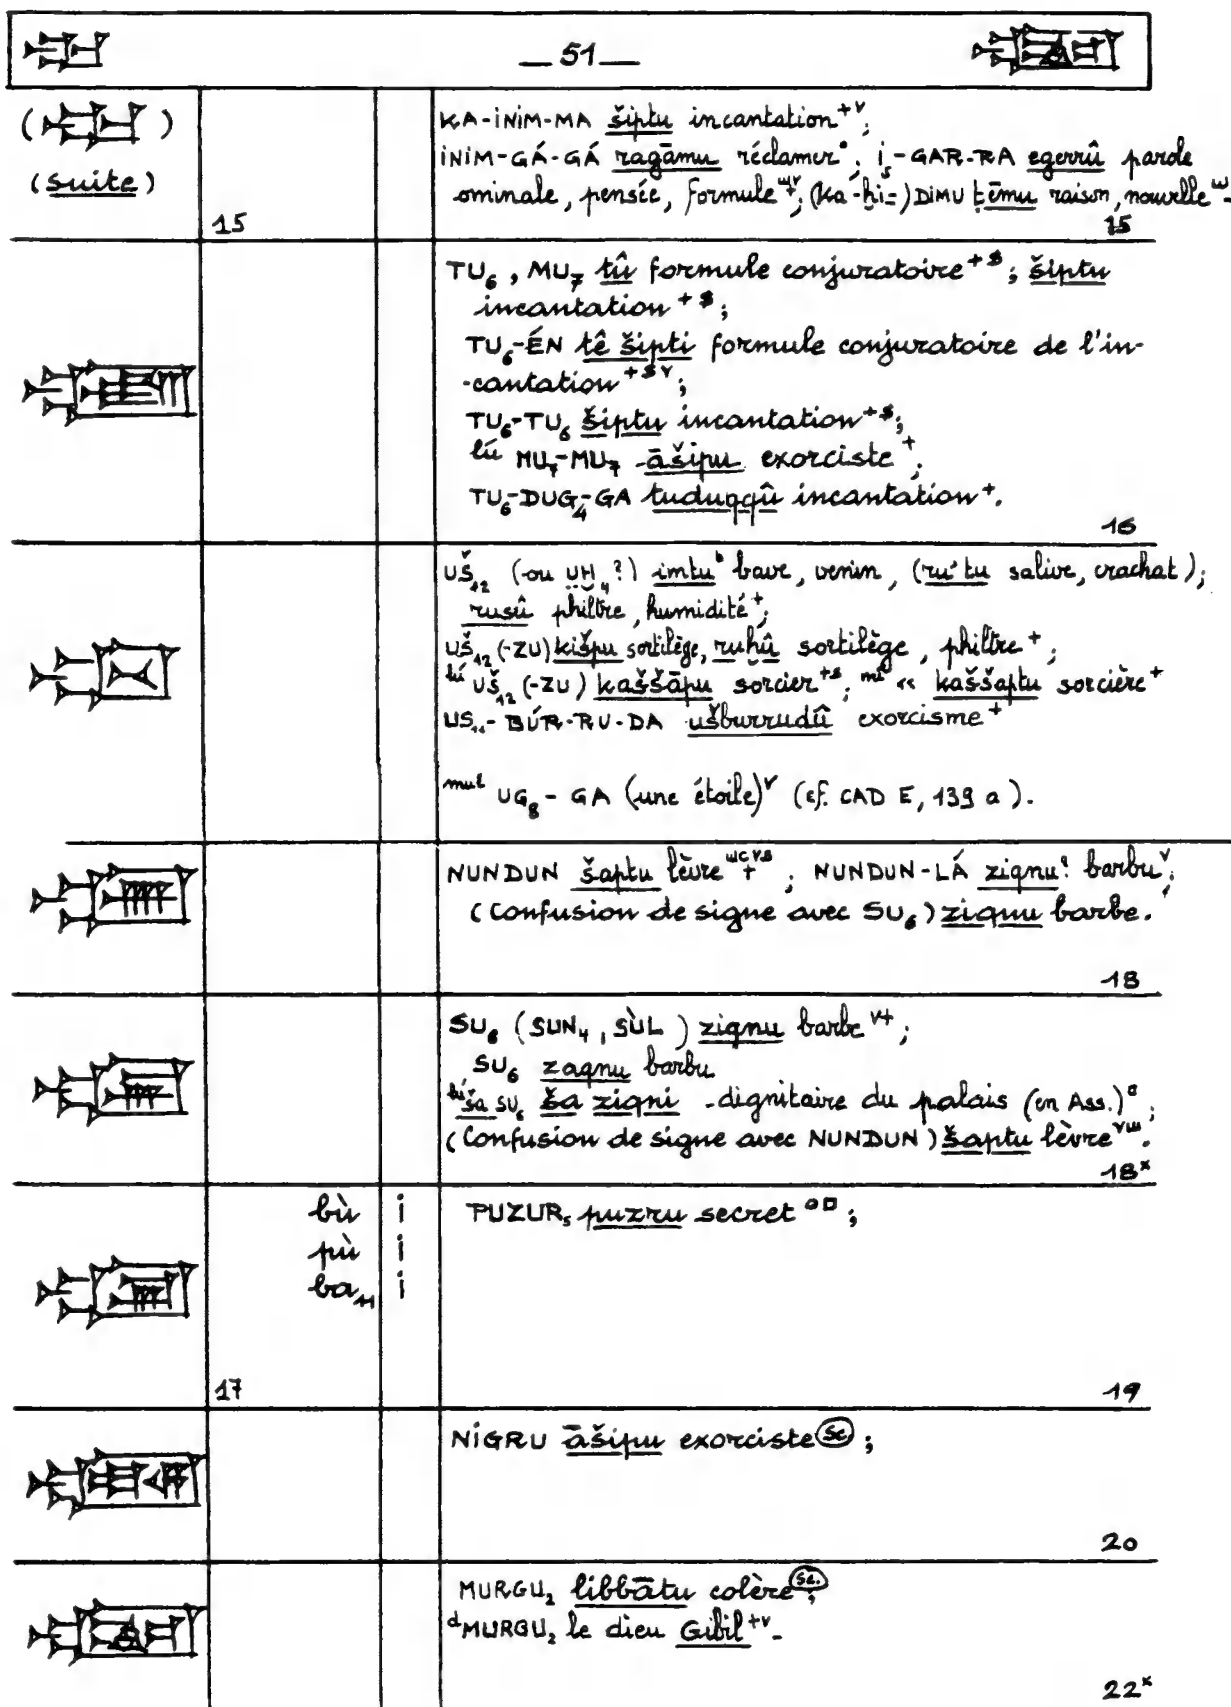 — 51 —
(suite)
KA-INIM-MA šiptu incantation⁺ᵛ;
INIM-GÁ-GÁ ragāmu réclamer°; i₅-GAR-RA egerrû parole
ominale, pensée, formule; (ka-ḫi-) DIMU ṭēmu raison, nouvelle
15 15
TU₆, MU₇ tû formule conjuratoire⁺ˢ; šiptu
incantation⁺ˢ;
TU₆-ÉN tê šipti formule conjuratoire de l'in-
-cantation⁺ˢᵛ;
TU₆-TU₆ šiptu incantation⁺ˢ;
lú MU₇-MU₇ āšipu exorciste⁺;
TU₆-DUG₄-GA tuduqqû incantation⁺.
16
UŠ₁₂ (ou UḪ₄?) imtu bave, venin, (ru'tu salive, crachat);
rusû philtre, humidité⁺;
UŠ₁₂(-ZU) kišpu sortilège, ruḫû sortilège, philtre⁺;
lú UŠ₁₂(-ZU) kaššāpu sorcier⁺ˢ; mí « kaššaptu sorcière⁺
UŠ₁₁-BÚR-RU-DA ušburrudû exorcisme⁺
mul UG₈-GA (une étoile)ᵛ (cf. CAD E, 139 a).
NUNDUN šaptu lèvre; NUNDUN-LÁ ziqnu? barbuᵛ;
(Confusion de signe avec SU₆) ziqnu barbe.
18
SU₆ (SUN₄, SÙL) ziqnu barbeᵛ⁺;
SU₆ zaqnu barbu
lú ša SU₆ ša ziqni dignitaire du palais (en Ass.);
(Confusion de signe avec NUNDUN) šaptu lèvre.
18ˣ
bù i PUZUR₅ puzru secret°□;
pù i
ba₁₁ i
17 19
NIGRU āšipu exorciste (Sc);
20
MURGU₂ libbātu colère (Sc.);
ᵈMURGU₂ le dieu Gibil⁺ᵛ.
22ˣ